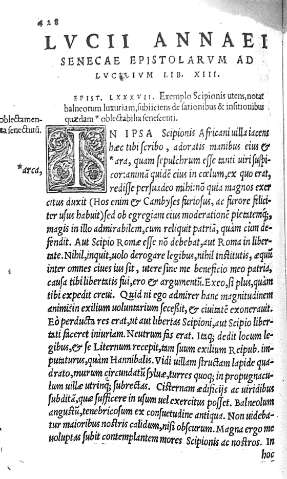 428
LVCII ANNAEI
SENECAE EPISTOLARVM AD
LVCILIVM LIB. XIII.
EPIST. LXXXVII. Exemplo Scipionis utens, notat
balneorum luxuriam, subijciens de sationibus & insitionibus
oblectamen-
ta senectutū.
quædam * oblectabilia senescenti.
IN IPSA Scipionis Africani uilla iacens
hæc tibi scribo, adoratis manibus eius &
*arca,
*ara, quam sepulchrum esse tanti uiri suspi
cor: animā quidē eius in cœlum, ex quo erat,
redisse persuadeo mihi: nō quia magnos exer
citus duxit (Hos enim & Cambyses furiosus, ac furore felici
ter usus habuit) sed ob egregiam eius moderationē pietatemq;
magis in illo admirabilem, cum reliquit patriā, quam cum de-
fendit. Aut Scipio Romæ esse nō debebat, aut Roma in liber-
tate. Nihil, inquit, uolo derogare legibus, nihil institutis, æquū
inter omnes ciues ius sit, utere sine me beneficio meo patria,
causa tibi libertatis fui, ero & argumentū. Exeo, si plus, quàm
tibi expedit creui. Quid ni ego admirer hanc magnitudinem
animi? in exilium uoluntarium secessit, & ciuitatē exonerauit.
Eò perducta res erat, ut aut libertas Scipioni, aut Scipio liber-
tati faceret iniuriam. Neutrum fas erat. Itaq; dedit locum le-
gibus, & se Liternum recepit, tam suum exilium Reipub. im-
putaturus, quàm Hannibalis. Vidi uillam structam lapide qua-
drato, murum circundatū syluæ, turres quoq; in propugnacu-
lum uillæ utrinq; subrectas. Cisternam ædificijs ac uiridibus
subditā, quæ sufficere in usum uel exercitus posset. Balneolum
angustū, tenebricosum ex consuetudine antiqua. Non uideba-
tur maioribus nostris calidum, nisi obscurum. Magna ergo me
uoluptas subit contemplantem mores Scipionis ac nostros. In
hoc